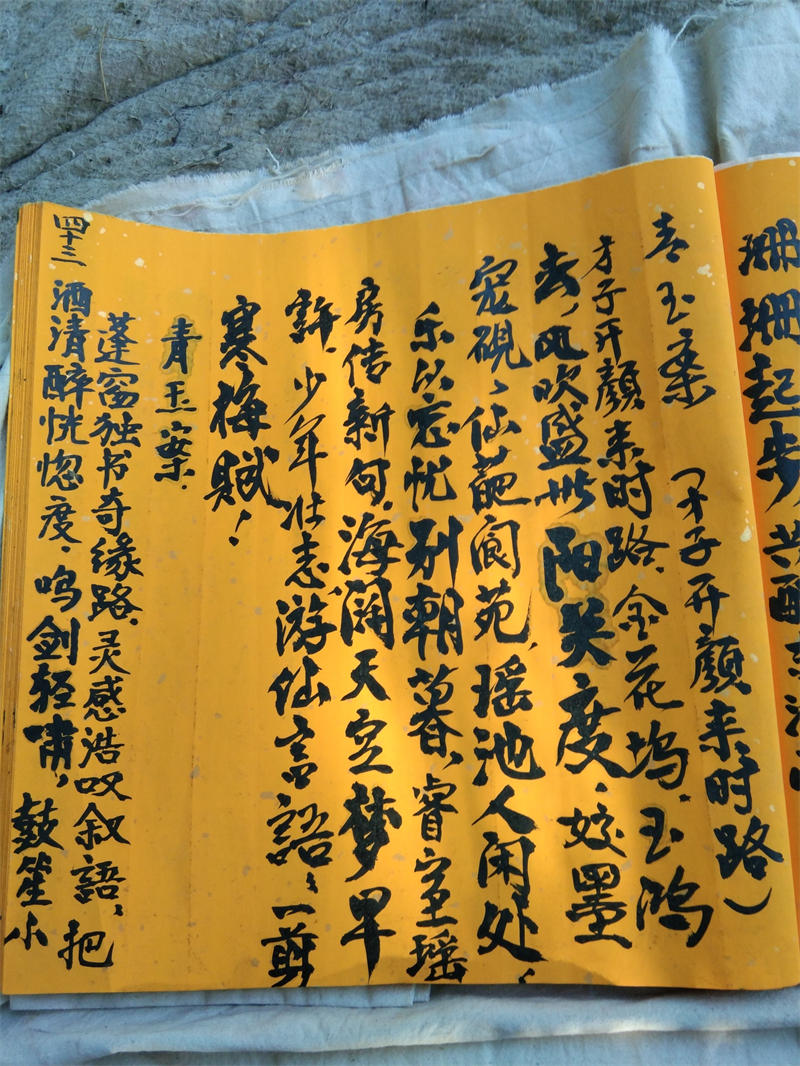 珊珊起步
青玉案 (才子开颜来时路)
才子开颜来时路、金花坞、玉鸿
去，风吹盛世阳关度、姣墨
宠砚、仙葩阆苑、瑶池人闲处、
乐以忘忧别朝暮、睿室瑶
房佳新句、海阔天空梦早
许、少年壮志游仙言语、一剪
寒梅赋！
青玉案、
蓬窗独书奇缘路、灵感浩叹叙语、把
酒清醉恍惚度、鸣剑轻啸，鼓笙小
四十三